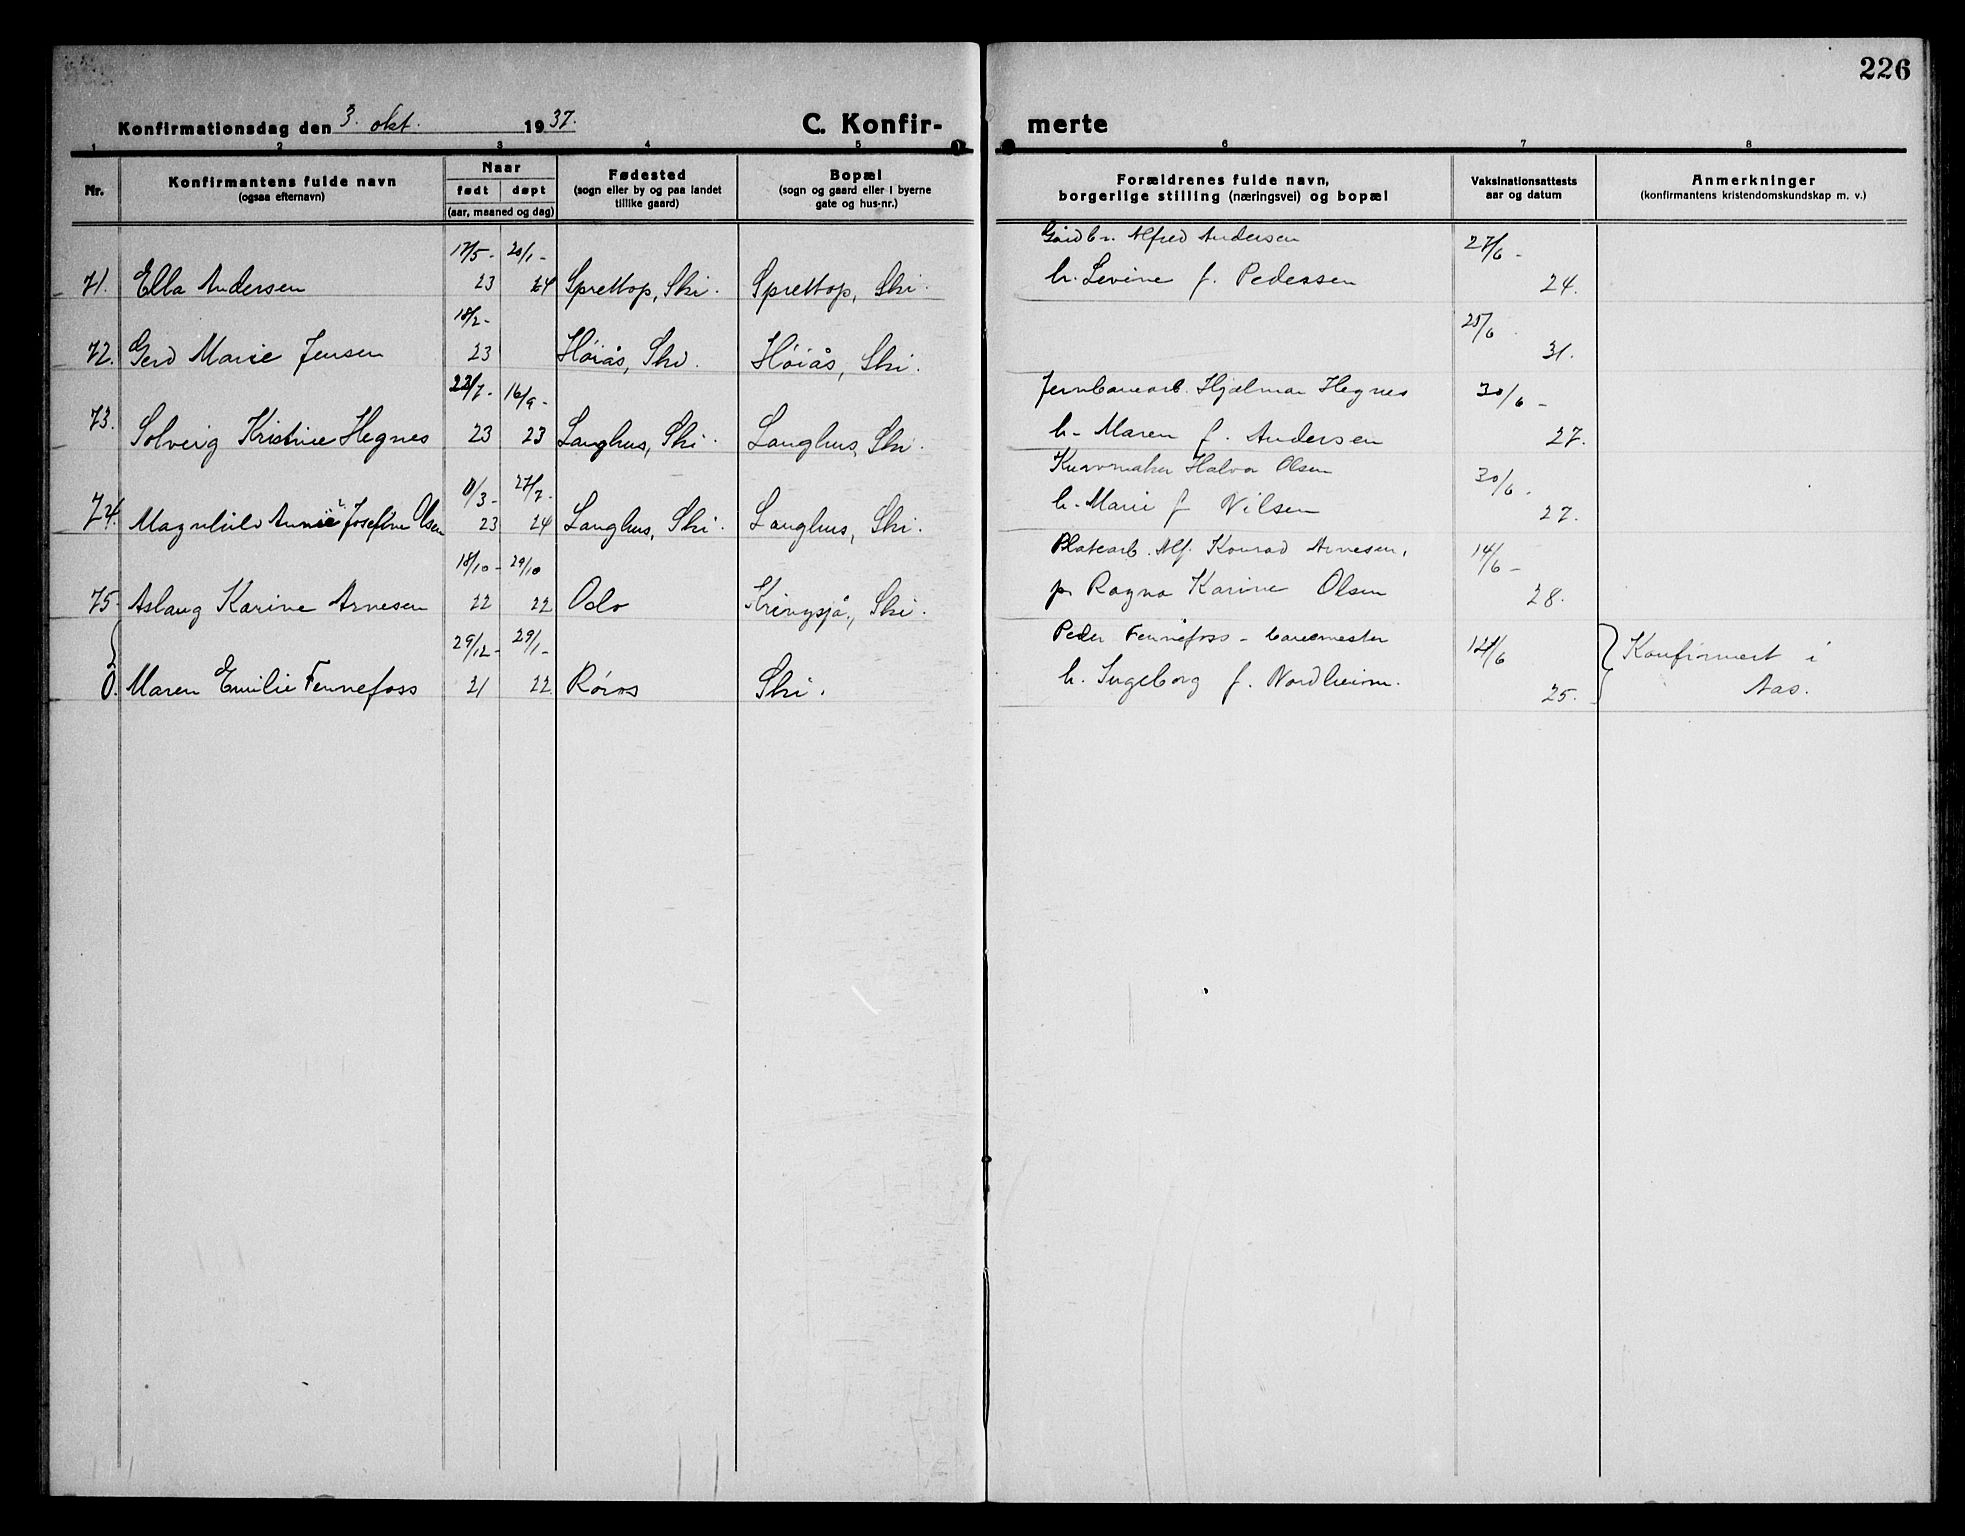 226
Konfirmationsdag den 3. okt. 1937.
C. Konfir-
merte
1 2 3 4 5 6 7 8
Nr.
Konfirmantens fulde navn
(ogsaa efternavn)
Naar
født døpt
(aar, maaned og dag)
Fødested
(sogn eller by og paa landet
tillike gaard)
Bopæl
(sogn og gaard eller i byerne
gate og hus-nr.)
Forældrenes fulde navn,
borgerlige stilling (næringsvei) og bopæl
Vaksinationsattests
aar og datum
Anmerkninger
(konfirmantens kristendomskundskap m. v.)
17/5- 20/1- Gårdbr. Alfred Andersen 27/6-
71. Ella Andersen 23 24 Sprettop, Ski. Sprettop, Ski. h. Levine f. Pedersen 24.
18/2- 25/6.
72. Gerd Marie Jensen 23 Høiås, Ski. Høiås, Ski. 31.
22/7- 16/9- Jernbanearb. Hjalmar Hegnes 30/6-
73. Solveig Kristine Hegnes 23 23 Langhus, Ski. Langhus, Ski. h. Maren f. Andersen 27.
27/7- Kurvmaker Halvor Olsen 30/6-
74. Magnhild Annie Josefine Olsen 23 24 Langhus, Ski. Langhus, Ski. h. Marie f. Nilsen 27.
18/10- 29/10 Platearb. Alf. Konrad Arnesen, 14/6-
75. Aslaug Karine Arnesen 22 22 Oslo Kringsjå, Ski. Ragna Karine Olsen 28.
29/12- 29/1- Peder Fennefoss - banemester
0. Maren Emilie Fennefoss 21 22 Røros Ski. h. Ingeborg f. Nordheim. 25.
Konfirmert i
Aas.